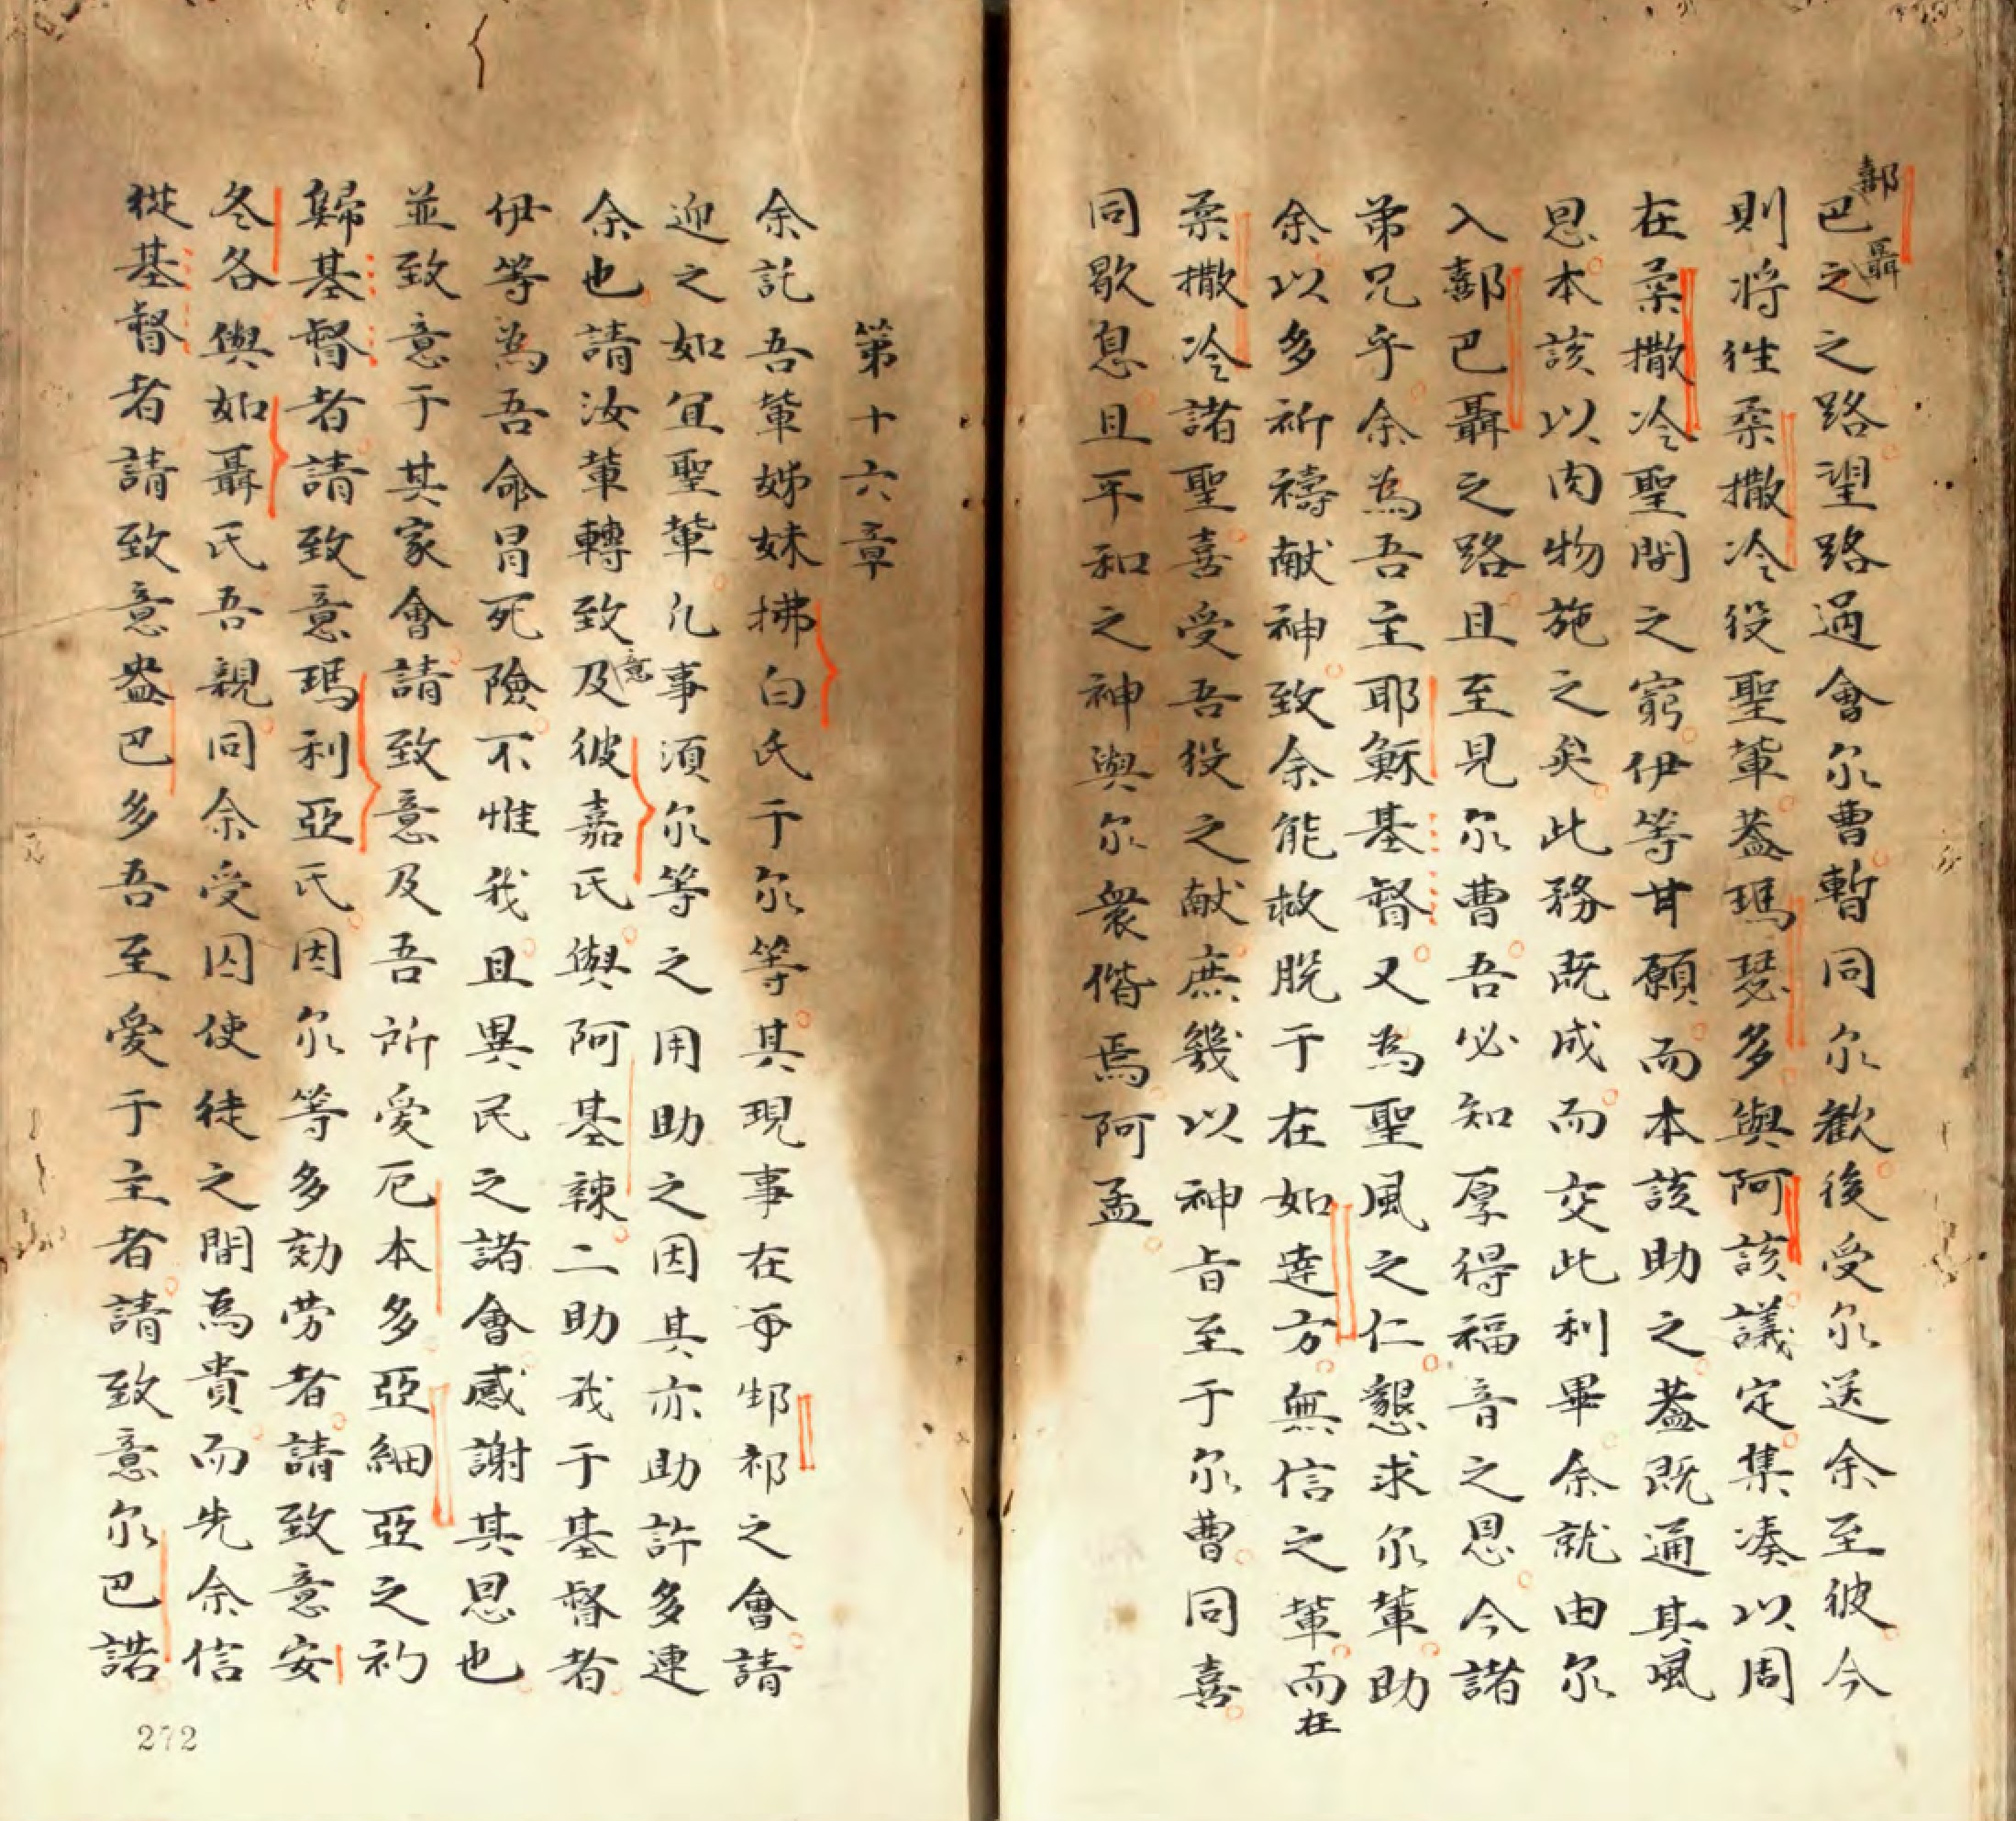 鄟巴聶之之路望路過會尔曹暫同尔歡後受尔送余至彼今
則將徃柔撒冷役聖輩葢瑪瑟多與阿該議定集凑以周
在柔撒冷聖間之窮伊等甘願而本該助之葢既通其風
恩本該以肉物施之矣此務既成而交此利畢余就由尔
入鄟巴聶之路且至見尔曹吾必知厚得福音之恩今諸
弟兄乎余為吾主耶穌基督又為聖風之仁懇求尔輩助
余以多祈禱献神致余能救脱于在如達方無信之輩而在
柔撒冷諸聖喜受吾役之献庶幾以神旨至于尔曹同喜
同歇息且平和之神與尔衆偕焉阿孟
第十六章
余託吾輩姊妹拂白氏于尔等其現事在
之會請
迎之如宜聖輩凡事須尔等之用助之因其亦助許多連
余也請汝輩轉致意及彼嘉氏與阿基辣二助我于基督者
伊等為吾命冐死險不惟我且異民之諸會感謝其恩也
並致意于其家會請致意及吾所愛厄本多亞細亞之礿
歸基督者請致意瑪利亞氏因尔等多効劳者請致意安
冬各與如聶氏吾親同余受囚使徒之間為貴而先余信
從基督者請致意盎巴多吾至愛于主者請致意尔巴諾
272